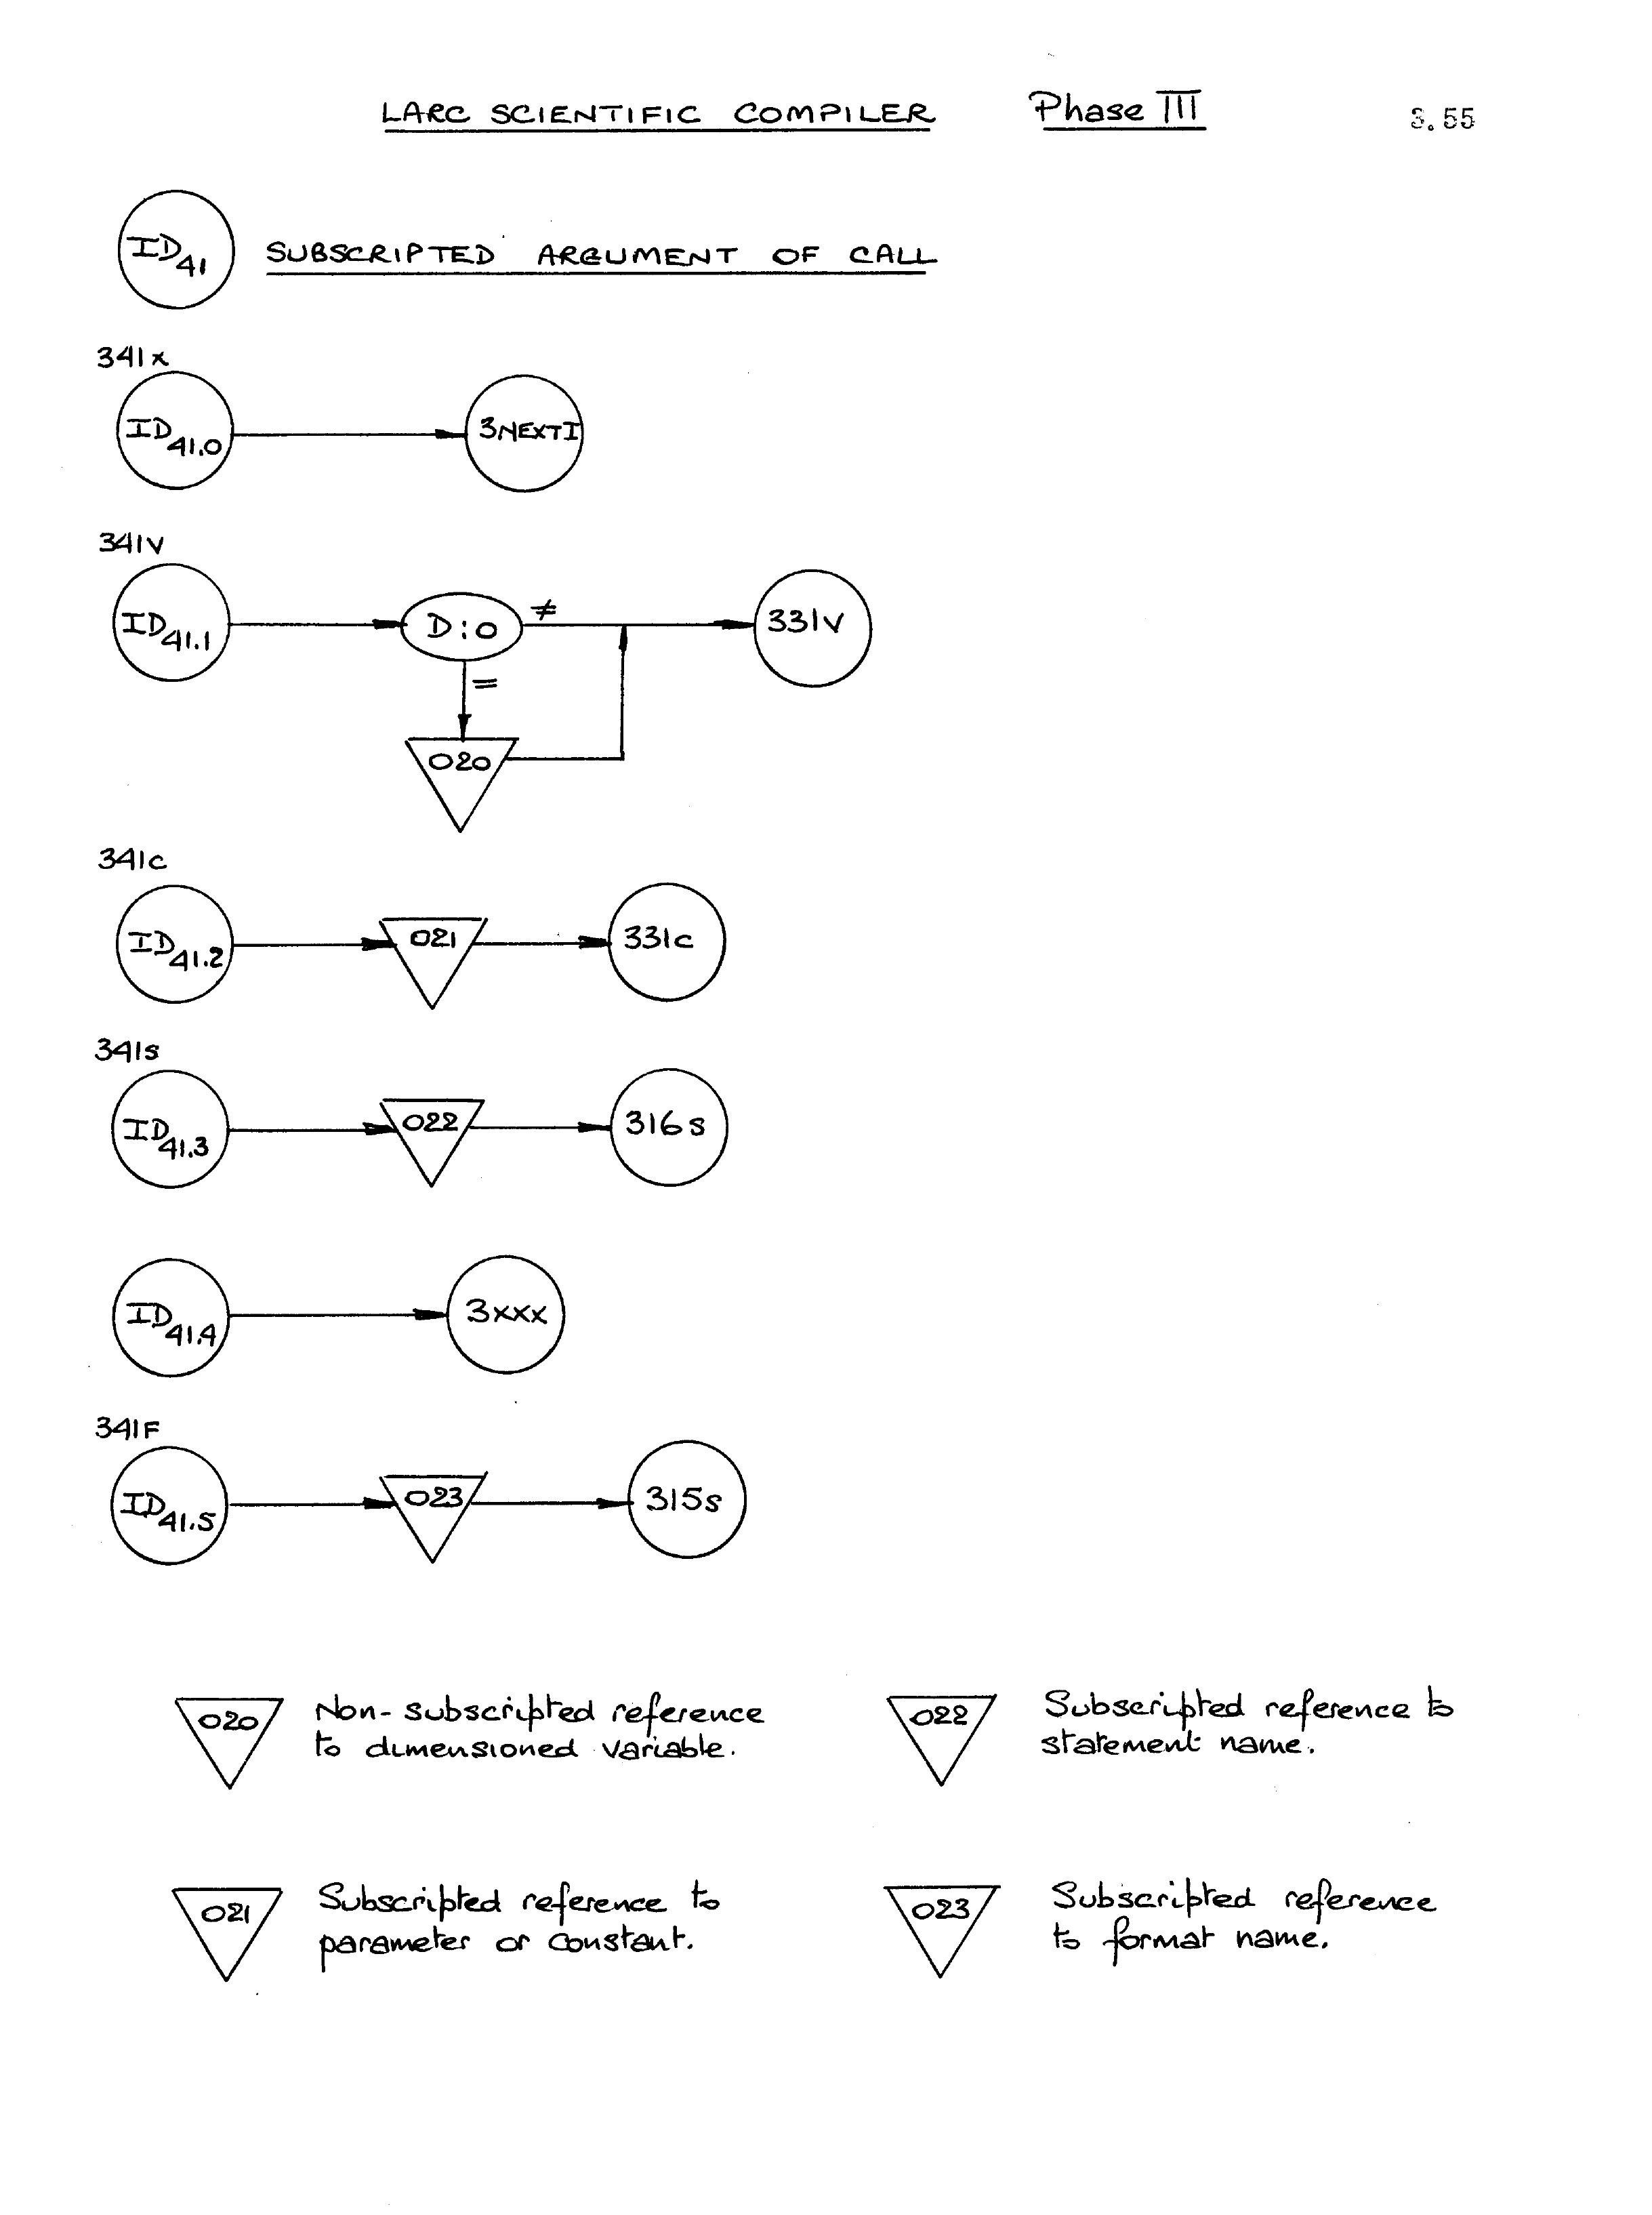 LARC SCIENTIFIC COMPILER Phase III 3.55
ID41 SUBSCRIPTED ARGUMENT OF CALL
341x
ID41.0 3NEXTI
341v
ID41.1 D:0 ≠ 331v
=
020
341c
ID41.2 021 331c
341s
ID41.3 022 316s
ID41.4 3xxx
341F
ID41.5 023 315s
020 Non-subscripted reference
to dimensioned variable.
022 Subscripted reference to
statement name.
021 Subscripted reference to
parameter or constant.
023 Subscripted reference
to format name.